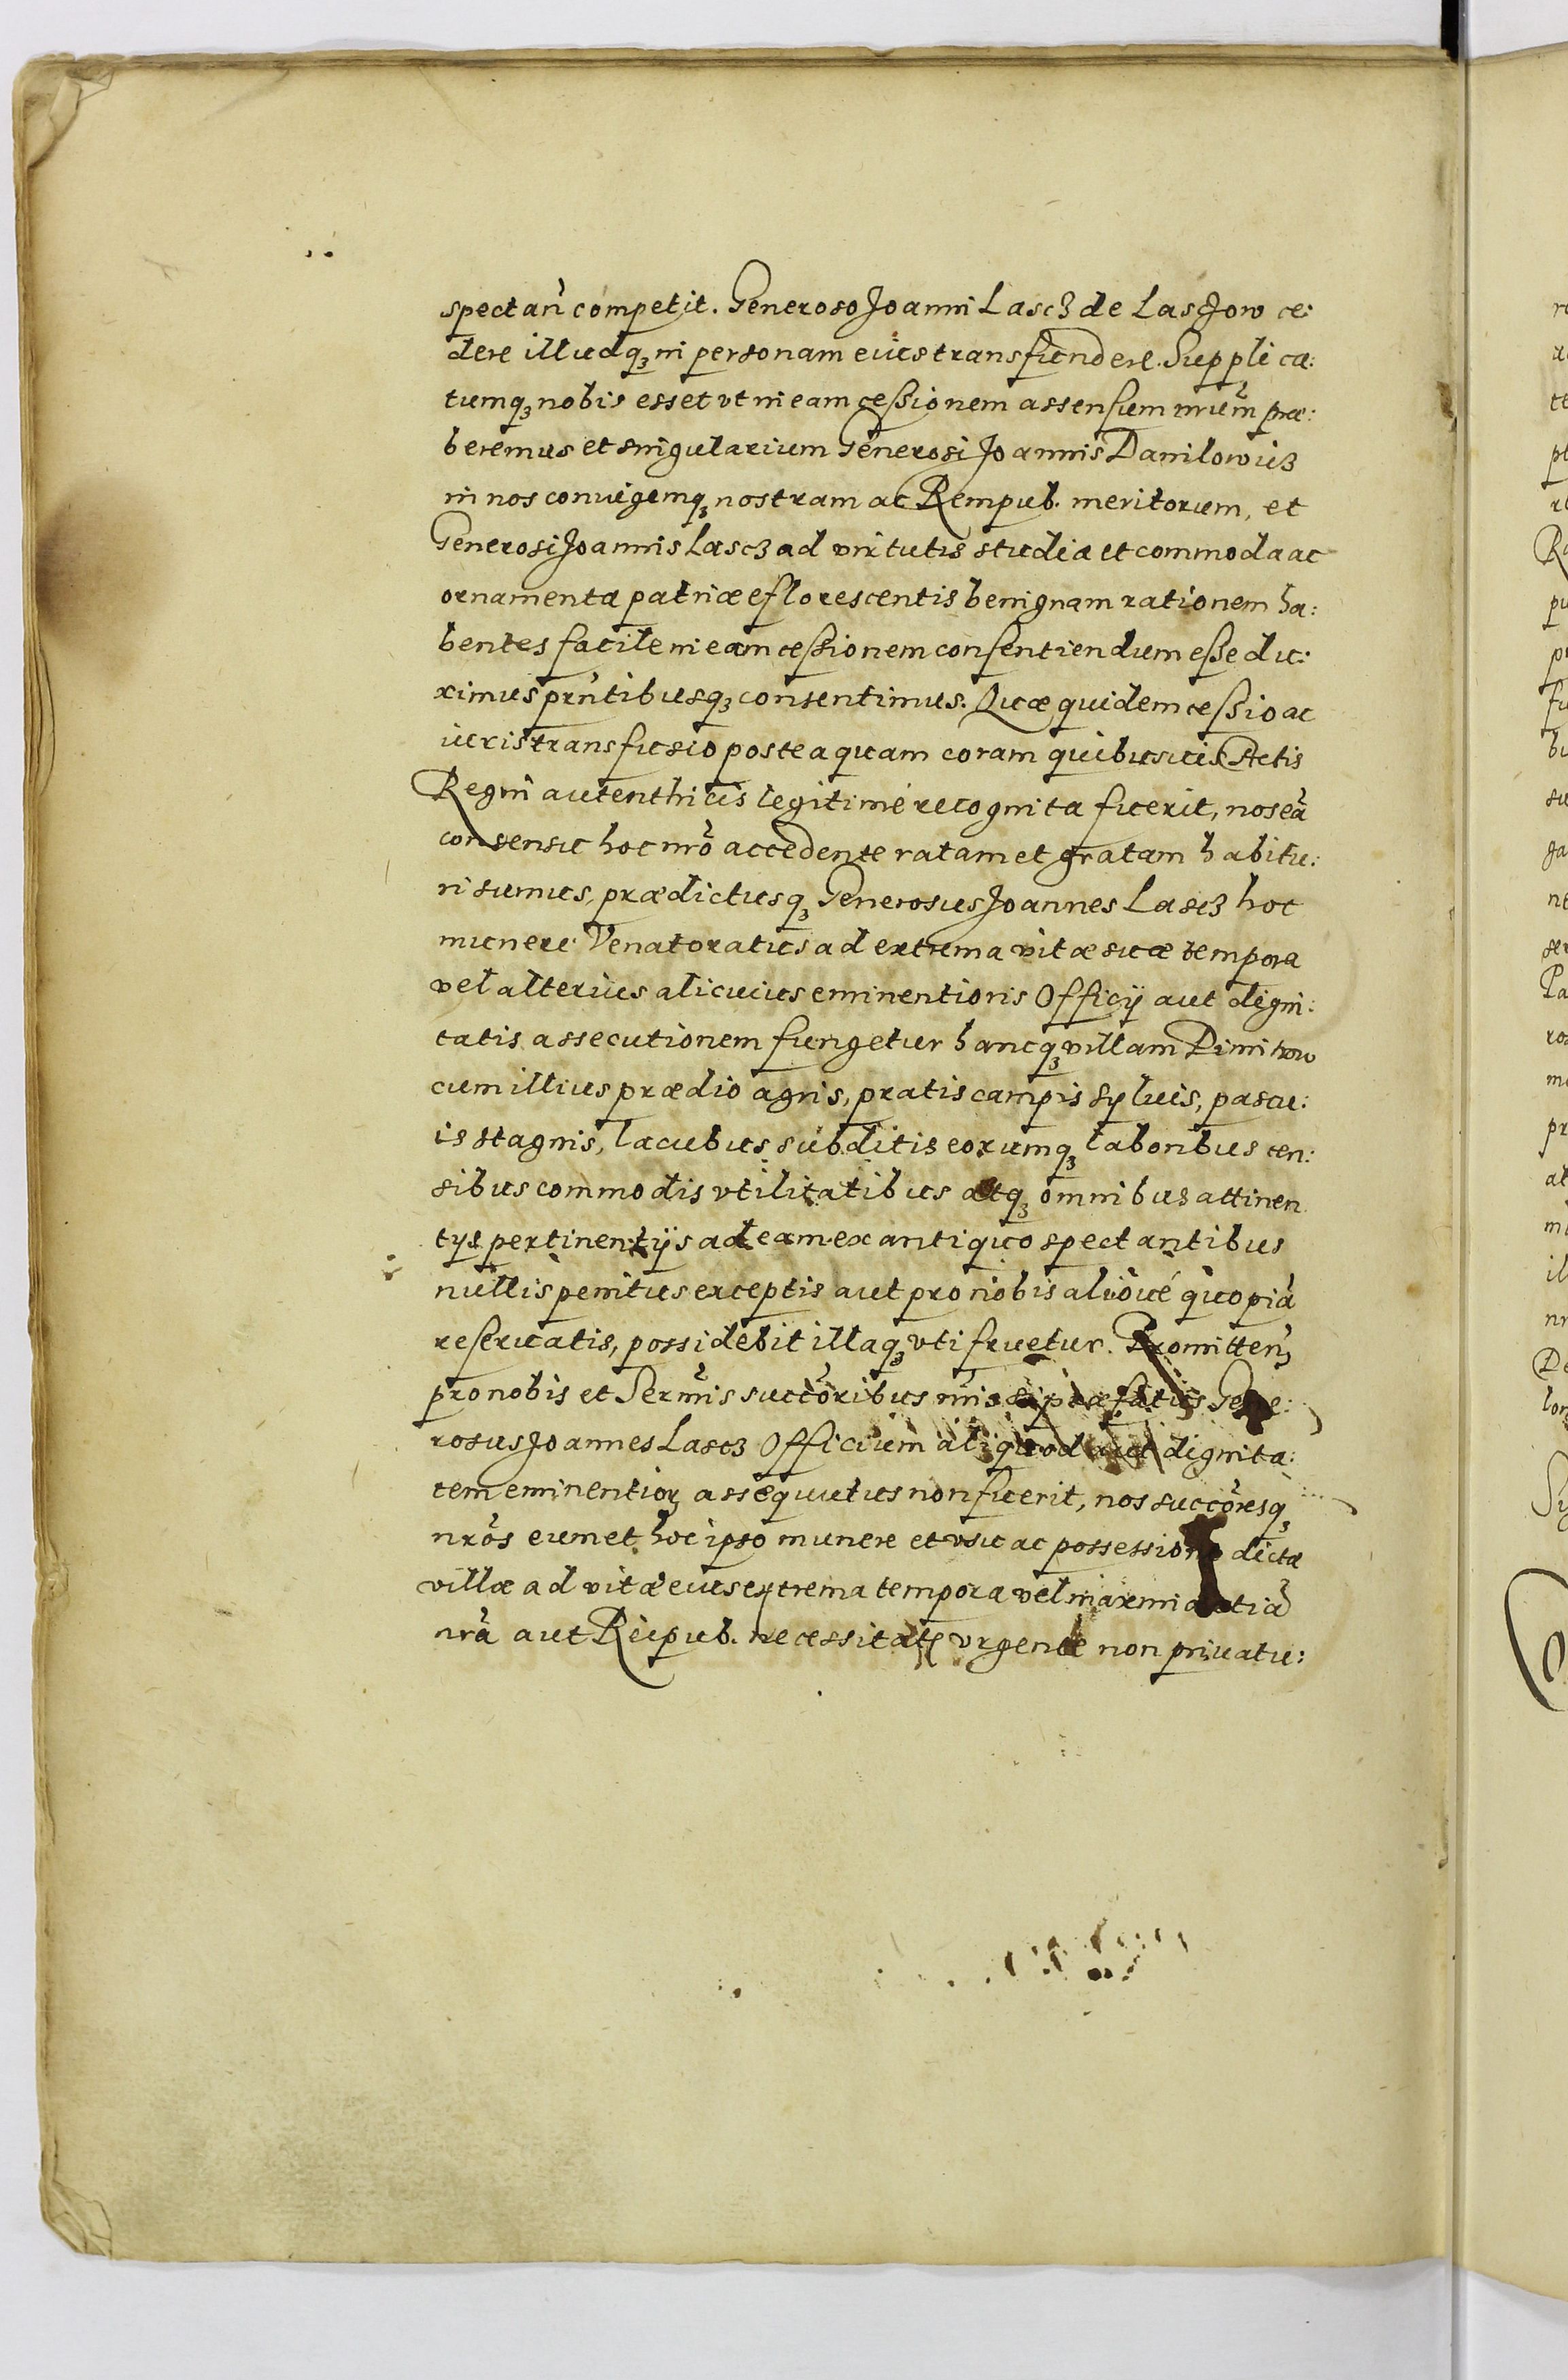 spectan̄ competit. Generoso Joanni Lascz de Lasczow ce:
dere illudq₃ in personam eius transfundere. Supplica:
tumq₃ nobis esset vt in eam ceſsionem assenſum nrum̄ præ:
beremus et singularium Generosi Joannis Danilowicz
in nos coniugemq₃ nostram ac Rempub. meritorum, et
Generosi Joannis Lascz ad virtutis studia et commoda ac
ornamenta patriæ eflorescentis benignam rationem ha:
bentes facile in eam ceſsionem conſentiendum eſse du:
ximus prn̄tibusq₃ consentimus. Quæ quidem ceſsio ac
iuris transfusio posteaquam coram quibusuis Actis
Regni autenthicis legitimé recognita fuerit, nos eā
consensu hoc nrō accedente ratam et gratam habitu:
ri sumus, prædictusq₃ Generosus Joannes Lascz hoc
munere Venatoratus ad extrema vitæ suæ tempora
vel alterius alicuius eminentioris Officÿ aut digni:
tatis assecutionem fungetur hancq₃ villam Dimitrow
cum illius prædio agris, pratis campis syluis, pascu:
is stagnis, lacubus subditis eorumq₃ laboribus cen:
sibus commodis vtilitatibus atq₃ omnibus attinen
tÿs pertinentÿs ad eam ex antiquo spectantibus
nullis penitus exceptis aut pro nobis alioué quopiā
reſeruatis, possidebit illaq₃ vti fruetur. Promitten̄
pro nobis et Serm̄is succōribus nr̄is si præfatus Gene:
rosus Joannes Lascz Officium aliquod aut dignita:
tem eminentior₃ assequutus non fuerit, nos succōresq₃
nrōs eum et hoc ipso munere et vsu ac possessione dictæ
villæ ad vitæ eius extrema tempora vel maximi
nrā aut Reipub. necessitate vrgente non priuatu: